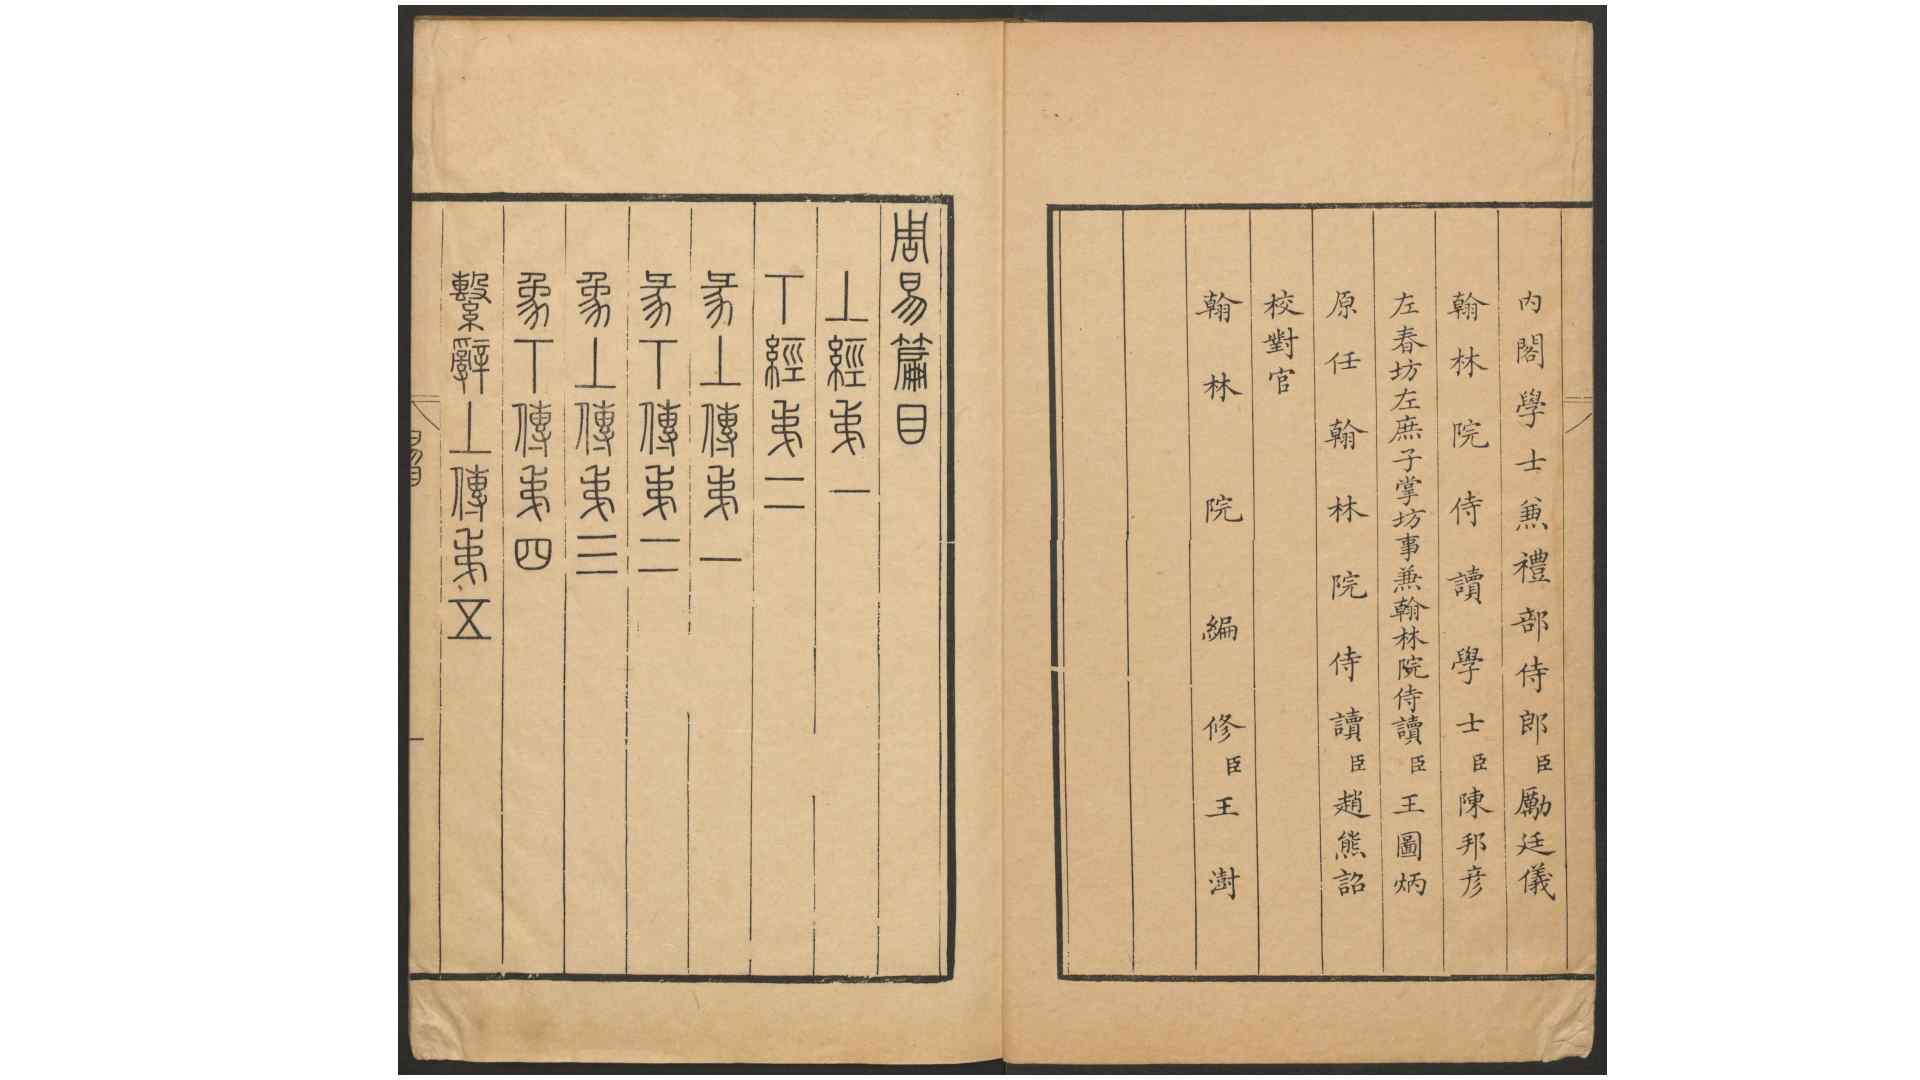 內閣學士兼禮部侍郎臣勵廷儀
翰林院侍讀學士臣陳邦彦
左春坊左庶子掌坊事兼翰林院侍讀臣王圖炳
原任翰林院侍讀臣趙熊詔
校對官
翰林院編修臣王澍
周易篇目
上經弟一
下經弟二
彖上傳弟一
彖下傳弟二
象上傳弟三
象下傳弟四
繫辭上傳弟五